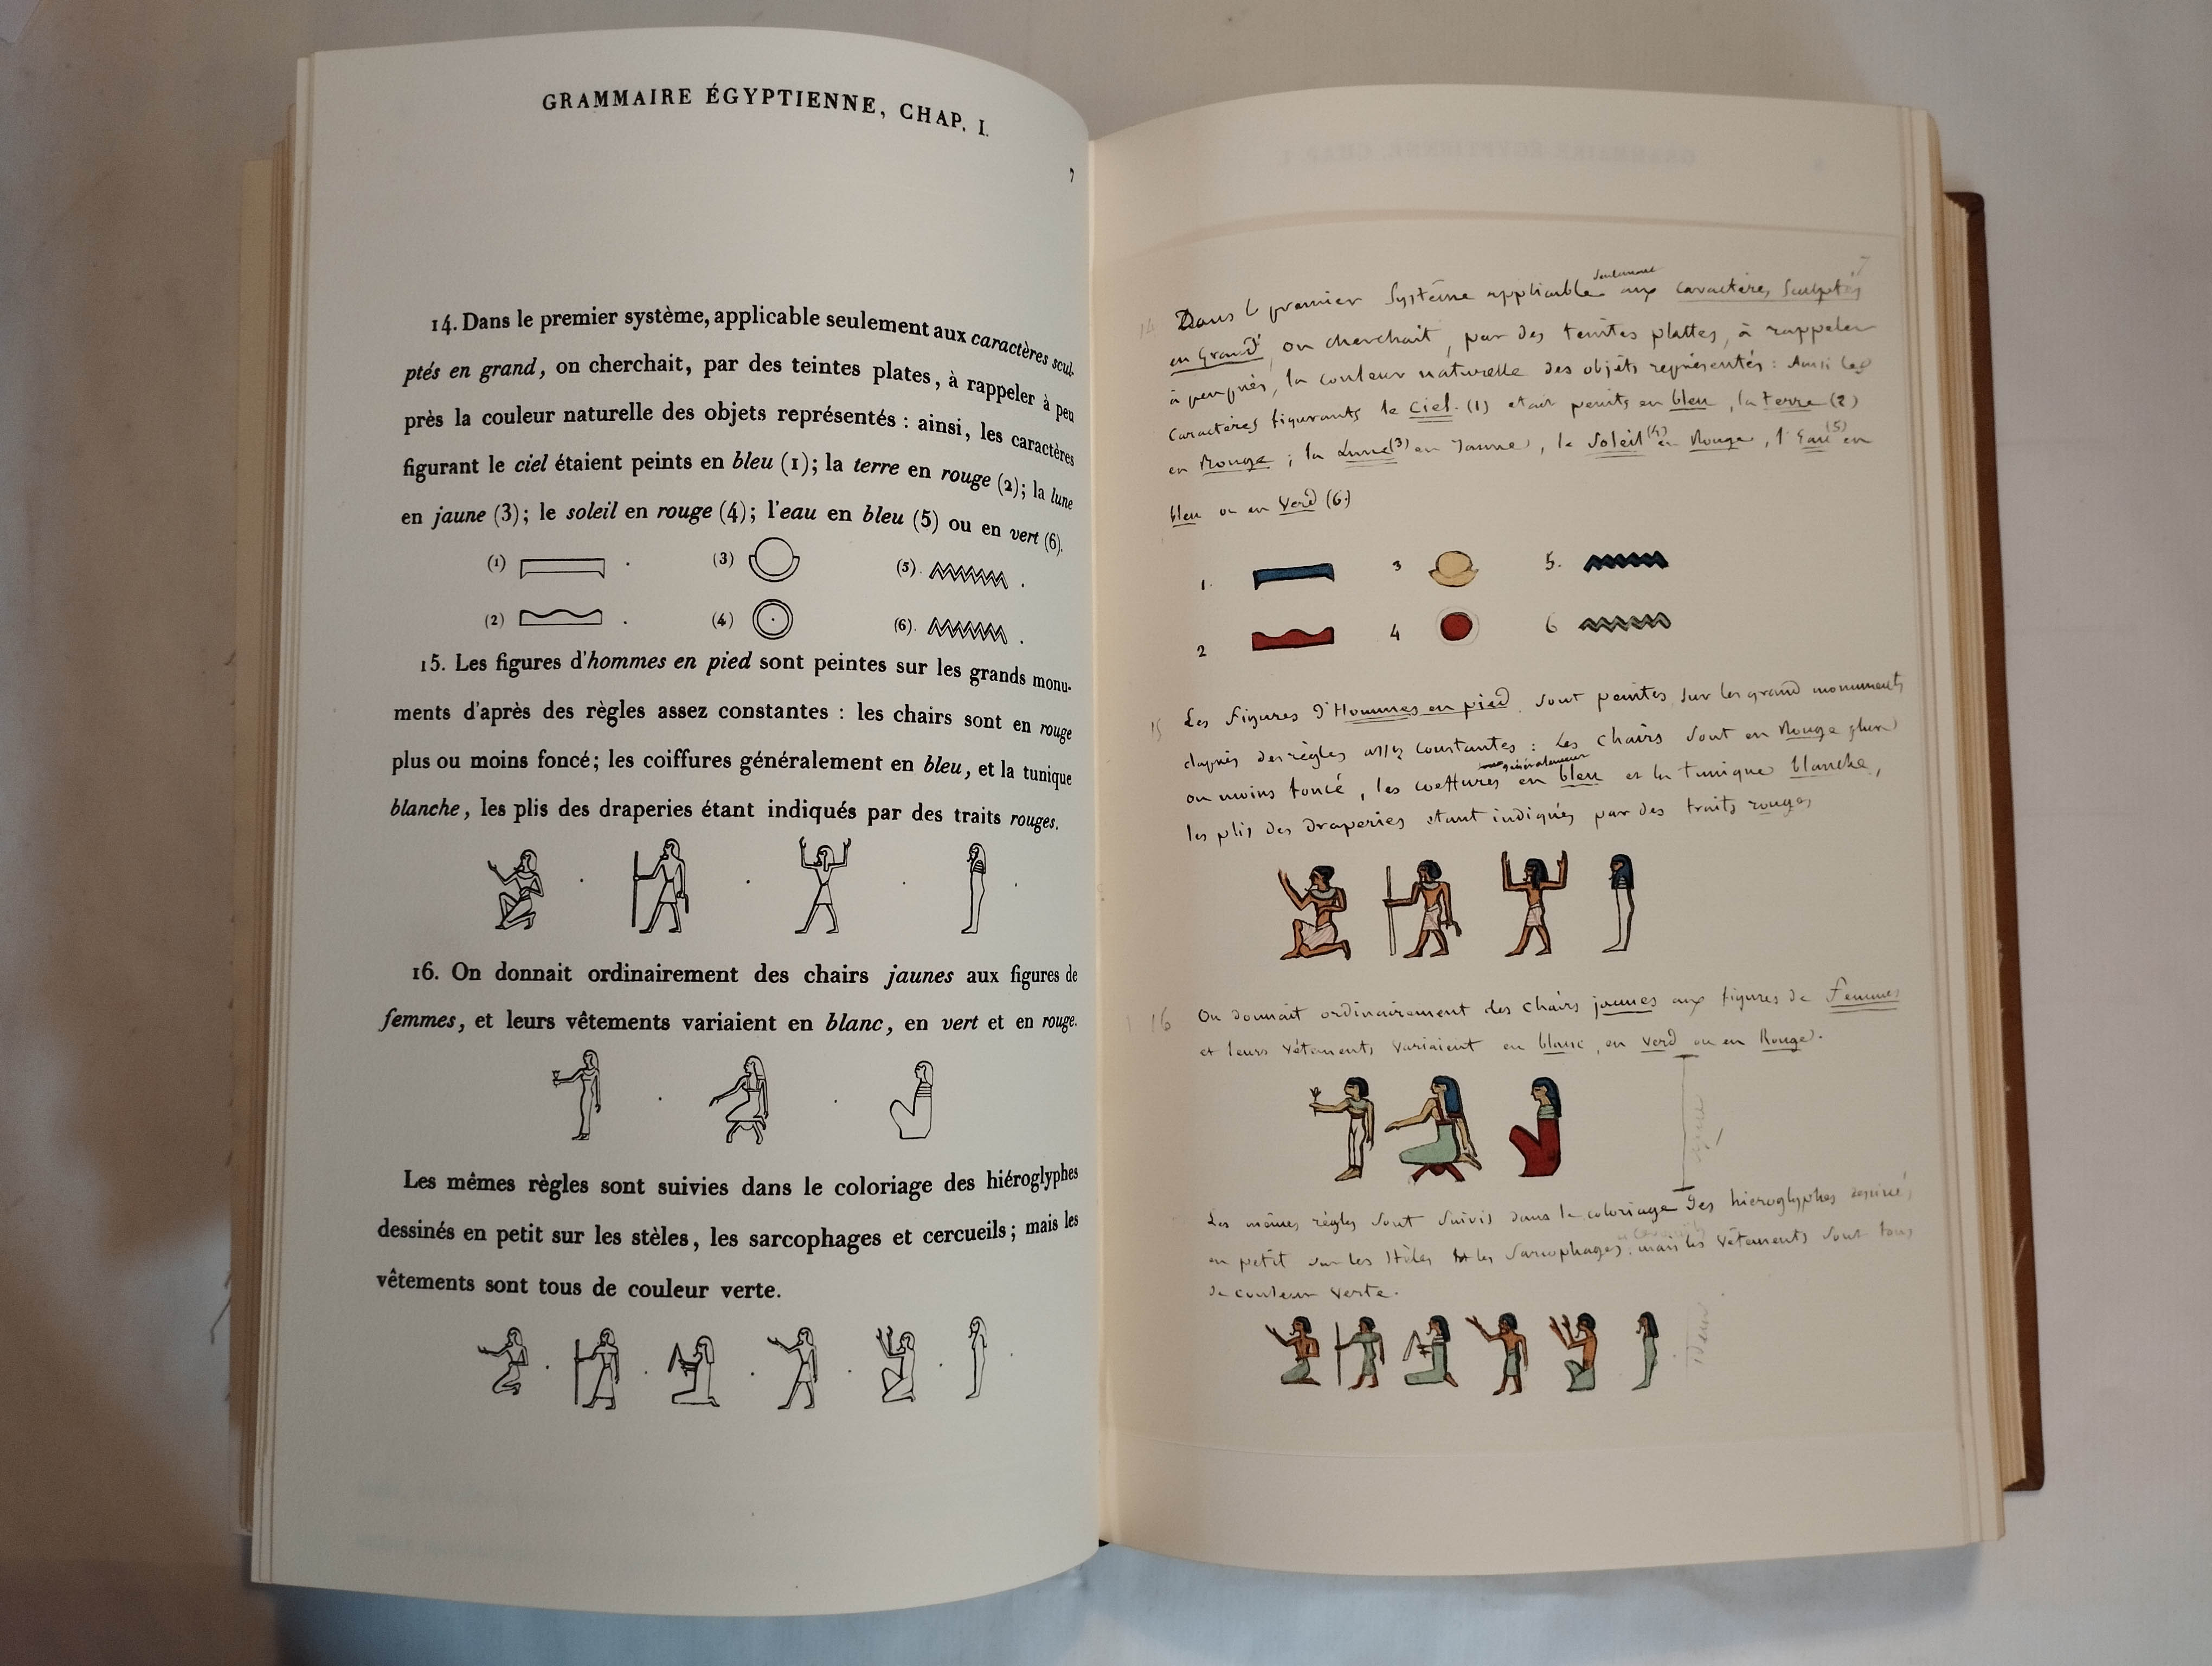 GRAMMAIRE ÉGYPTIENNE, CHAP. I.
7
14. Dans le premier système, applicable seulement aux caractères scul-
ptés en grand, on cherchait, par des teintes plates, à rappeler à peu
près la couleur naturelle des objets représentés : ainsi, les caractères
figurant le ciel étaient peints en bleu (1); la terre en rouge (2); la lune
en jaune (3); le soleil en rouge (4); l'eau en bleu (5) ou en vert (6).
(1) (3) (5).
(2) (4) (6).
15. Les figures d'hommes en pied sont peintes sur les grands monu-
ments d'après des règles assez constantes : les chairs sont en rouge
plus ou moins foncé; les coiffures généralement en bleu, et la tunique
blanche, les plis des draperies étant indiqués par des traits rouges.
16. On donnait ordinairement des chairs jaunes aux figures de
femmes, et leurs vêtements variaient en blanc, en vert et en rouge.
Les mêmes règles sont suivies dans le coloriage des hiéroglyphes
dessinés en petit sur les stèles, les sarcophages et cercueils; mais les
vêtements sont tous de couleur verte.
7
seulement
14 Dans le premier Système applicable aux caractères Sculptés
en Grand, on cherchait, par des teintes plattes, à rappeler
à peu près, la couleur naturelle des objets représentés : Ainsi les
caractères figurants le Ciel (1) était peints en bleu, la terre (2)
en Rouge ; la Lune (3) en Jaune, le Soleil (4) en Rouge, l'Eau (5) en
bleu ou en Verd (6)
1. 3 5.
2 4 6
15 Les Figures d'Hommes en pied sont peintes sur les grand monuments
d'après des règles assez constantes : Les chairs sont en Rouge plus
généralement
ou moins foncé, les coeffures en bleu et la tunique blanche,
les plis des draperies étant indiqués par des traits rouges
16 On donnait ordinairement des chairs jaunes aux figures de Femmes
et leurs vêtements variaient en blanc, en verd ou en Rouge.
Les mêmes règles sont suivis dans le coloriage des hieroglyphes dessinés
en petit sur les Stèles les Sarcophages, mais les vêtements sont tous
de couleur verte.